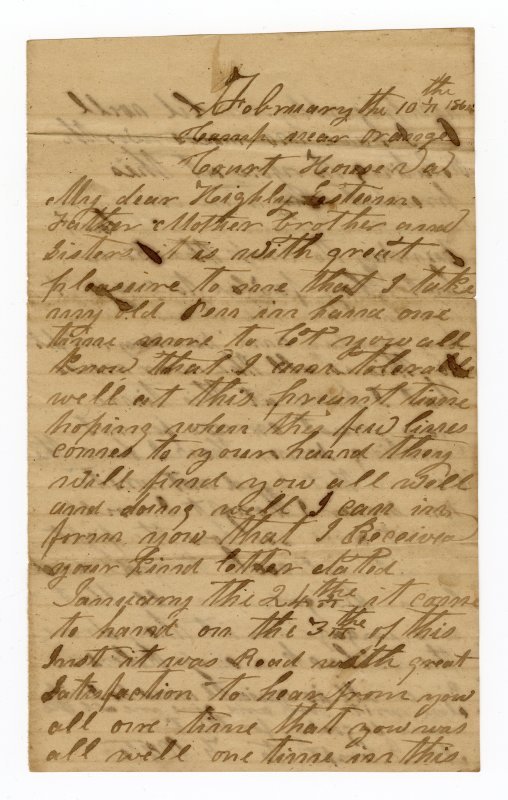 February the 10th
Camp near orange
Court House Va
My dear Highly Esteem
Father Mother brother and
Sisters it is with great
pleasure to me that I take
my old Pen in hand one
time more to let you all
know that I am tolerable
well at this preant time
hoping when this few lines
comes to your hand they
will find you all well
and doing well I can in
form you that I Received
your kind letter dated
January the 24the it come
to hand on the 3the of this
Inst it was Read with great
Satisfaction to hear from you
all one time that you was
all well one time in this